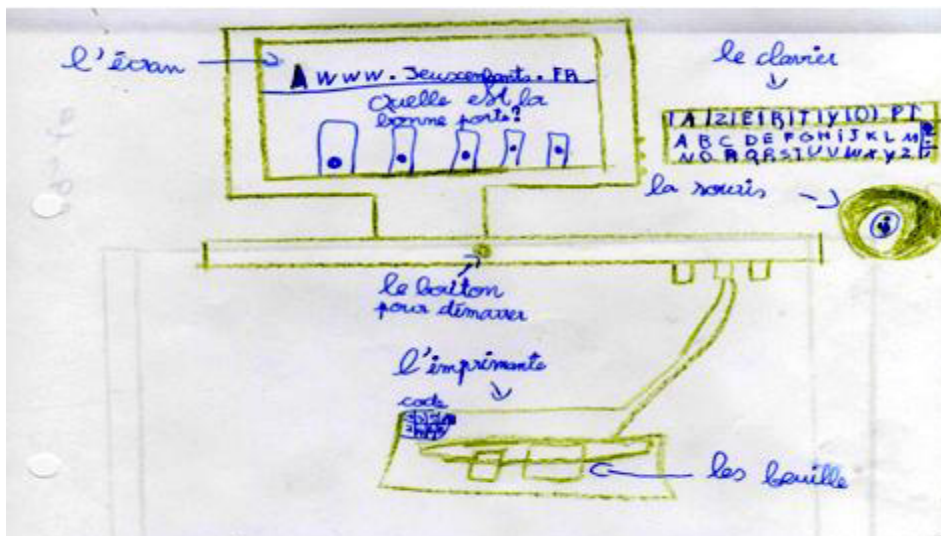 l'écran
A www.Jeuxenfants.FR
Quelle est la
bonne porte?
le clavier
A Z E R T Y O P
A B C D E F G H i J K L M
N O P Q R S T U V W x y z
la souris
le boîton
pour démarrer
l'imprimante
code
les beuille